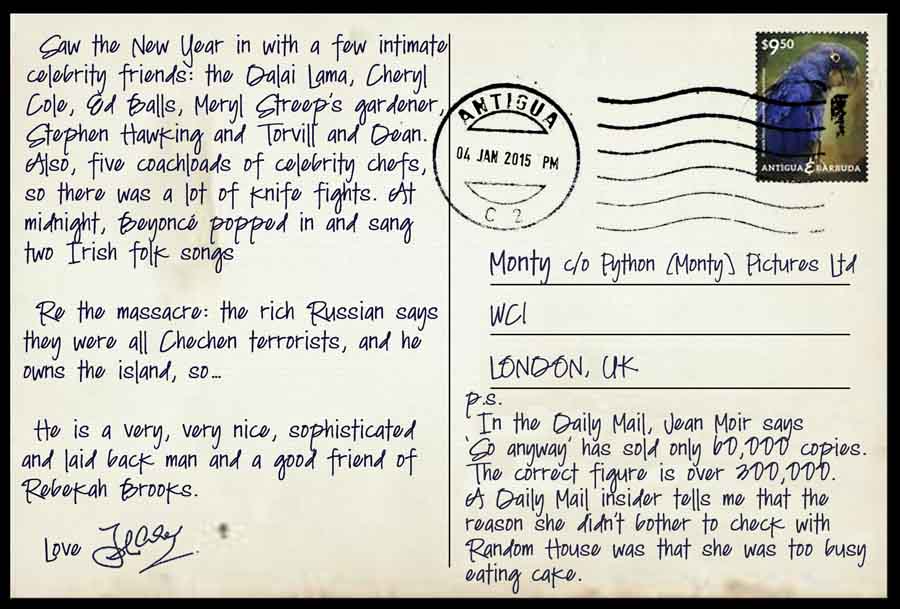 Saw the New Year in with a few intimate
celebrity friends: the Dalai Lama, Cheryl
Cole, Ed Balls, Meryl Streep's gardener,
Stephen Hawking and Torvill and Dean.
Also, five coachloads of celebrity chefs,
so there was a lot of knife fights. At
midnight, Beyoncé popped in and sang
two Irish folk songs
Re the massacre: the rich Russian says
they were all Chechen terrorists, and he
owns the island, so...
He is a very, very nice, sophisticated
and laid back man and a good friend of
Rebekah Brooks.
Love
ANTIGUA
04 JAN 2015 PM
C 2
$9.50
ANTIGUA & BARBUDA
Monty c/o Python (Monty) Pictures Ltd
WC1
LONDON, UK
p.s.
In the Daily Mail, Jean Moir says
'So anyway' has sold only 60,000 copies.
The correct figure is over 300,000.
A Daily Mail insider tells me that the
reason she didn't bother to check with
Random House was that she was too busy
eating cake.